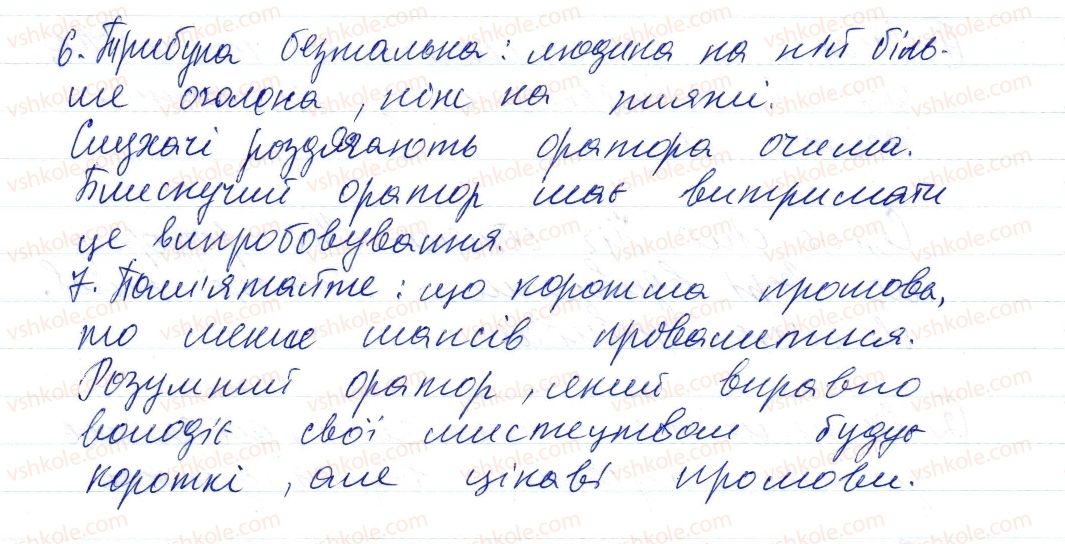 6. Трибуна безжальна: людина на ній біль-
ше оголена, ніж на пляжі.
Слухачі роздягають оратора очима.
Блискучий оратор має витримати
це випробовування.
7. Пам'ятайте: що коротша промова,
то менше шансів провалитися.
Розумний оратор, який вправно
володіє свої мистецтвом будує
короткі, але цікаві промови.